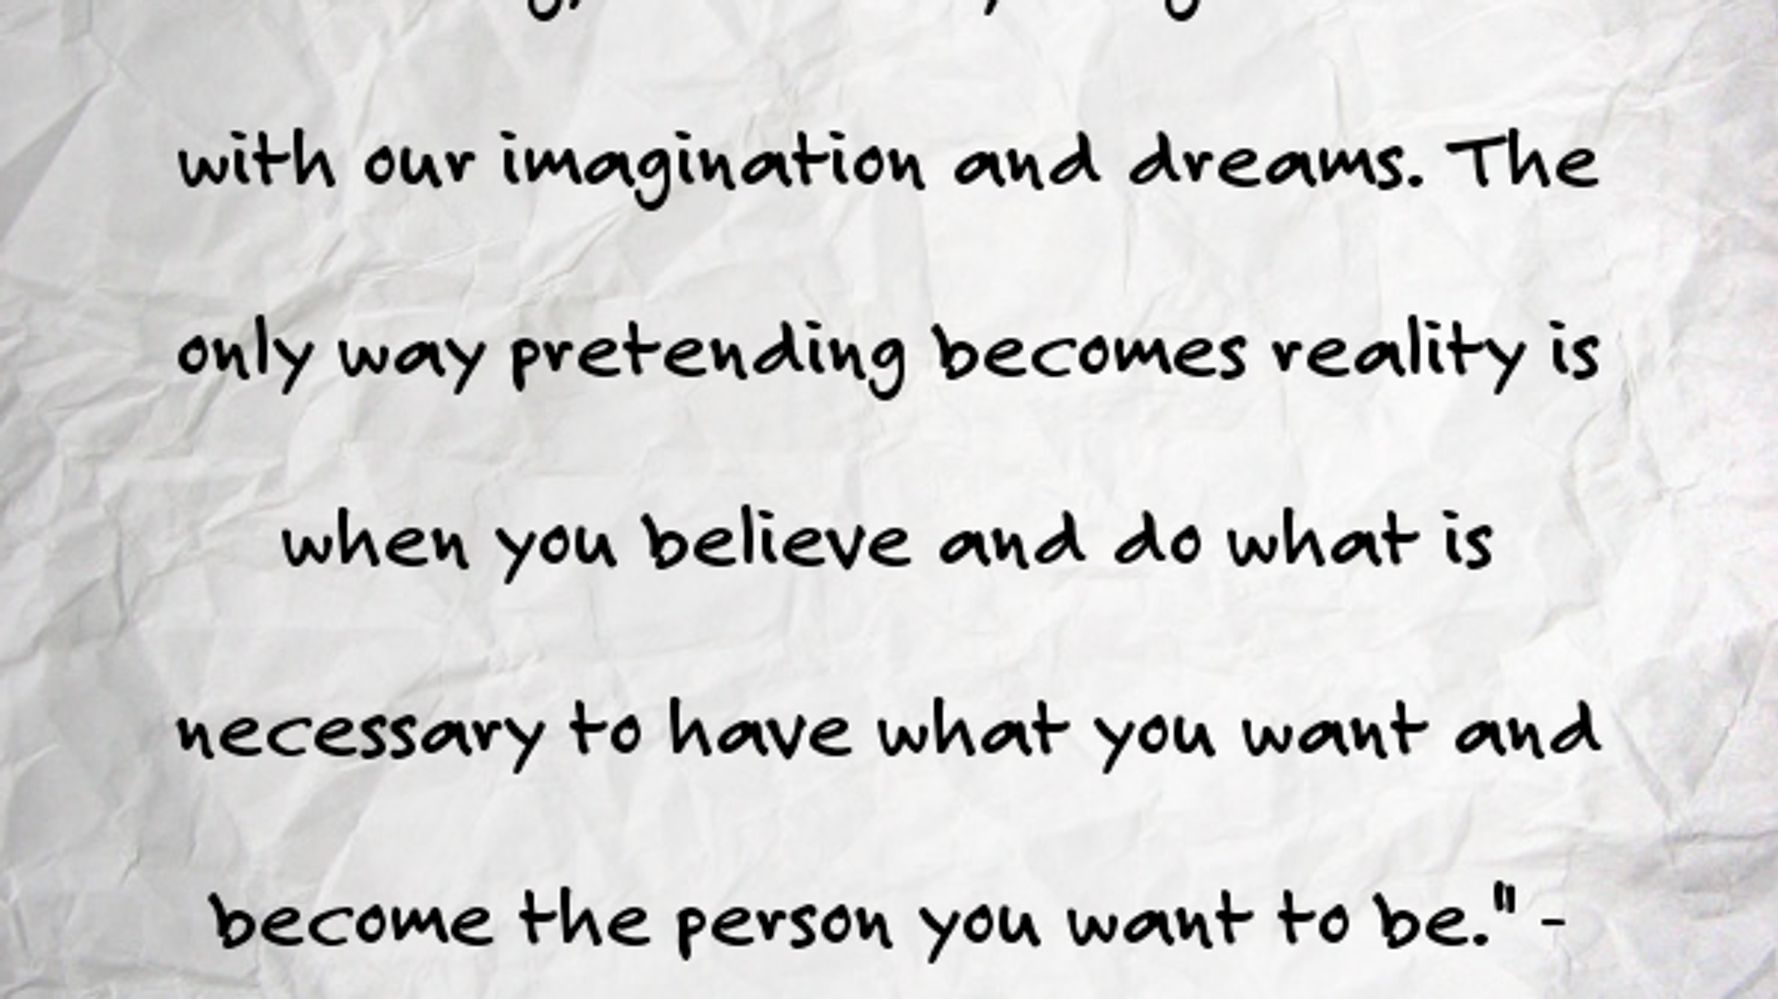 with our imagination and dreams. The
only way pretending becomes reality is
when you believe and do what is
necessary to have what you want and
become the person you want to be." -